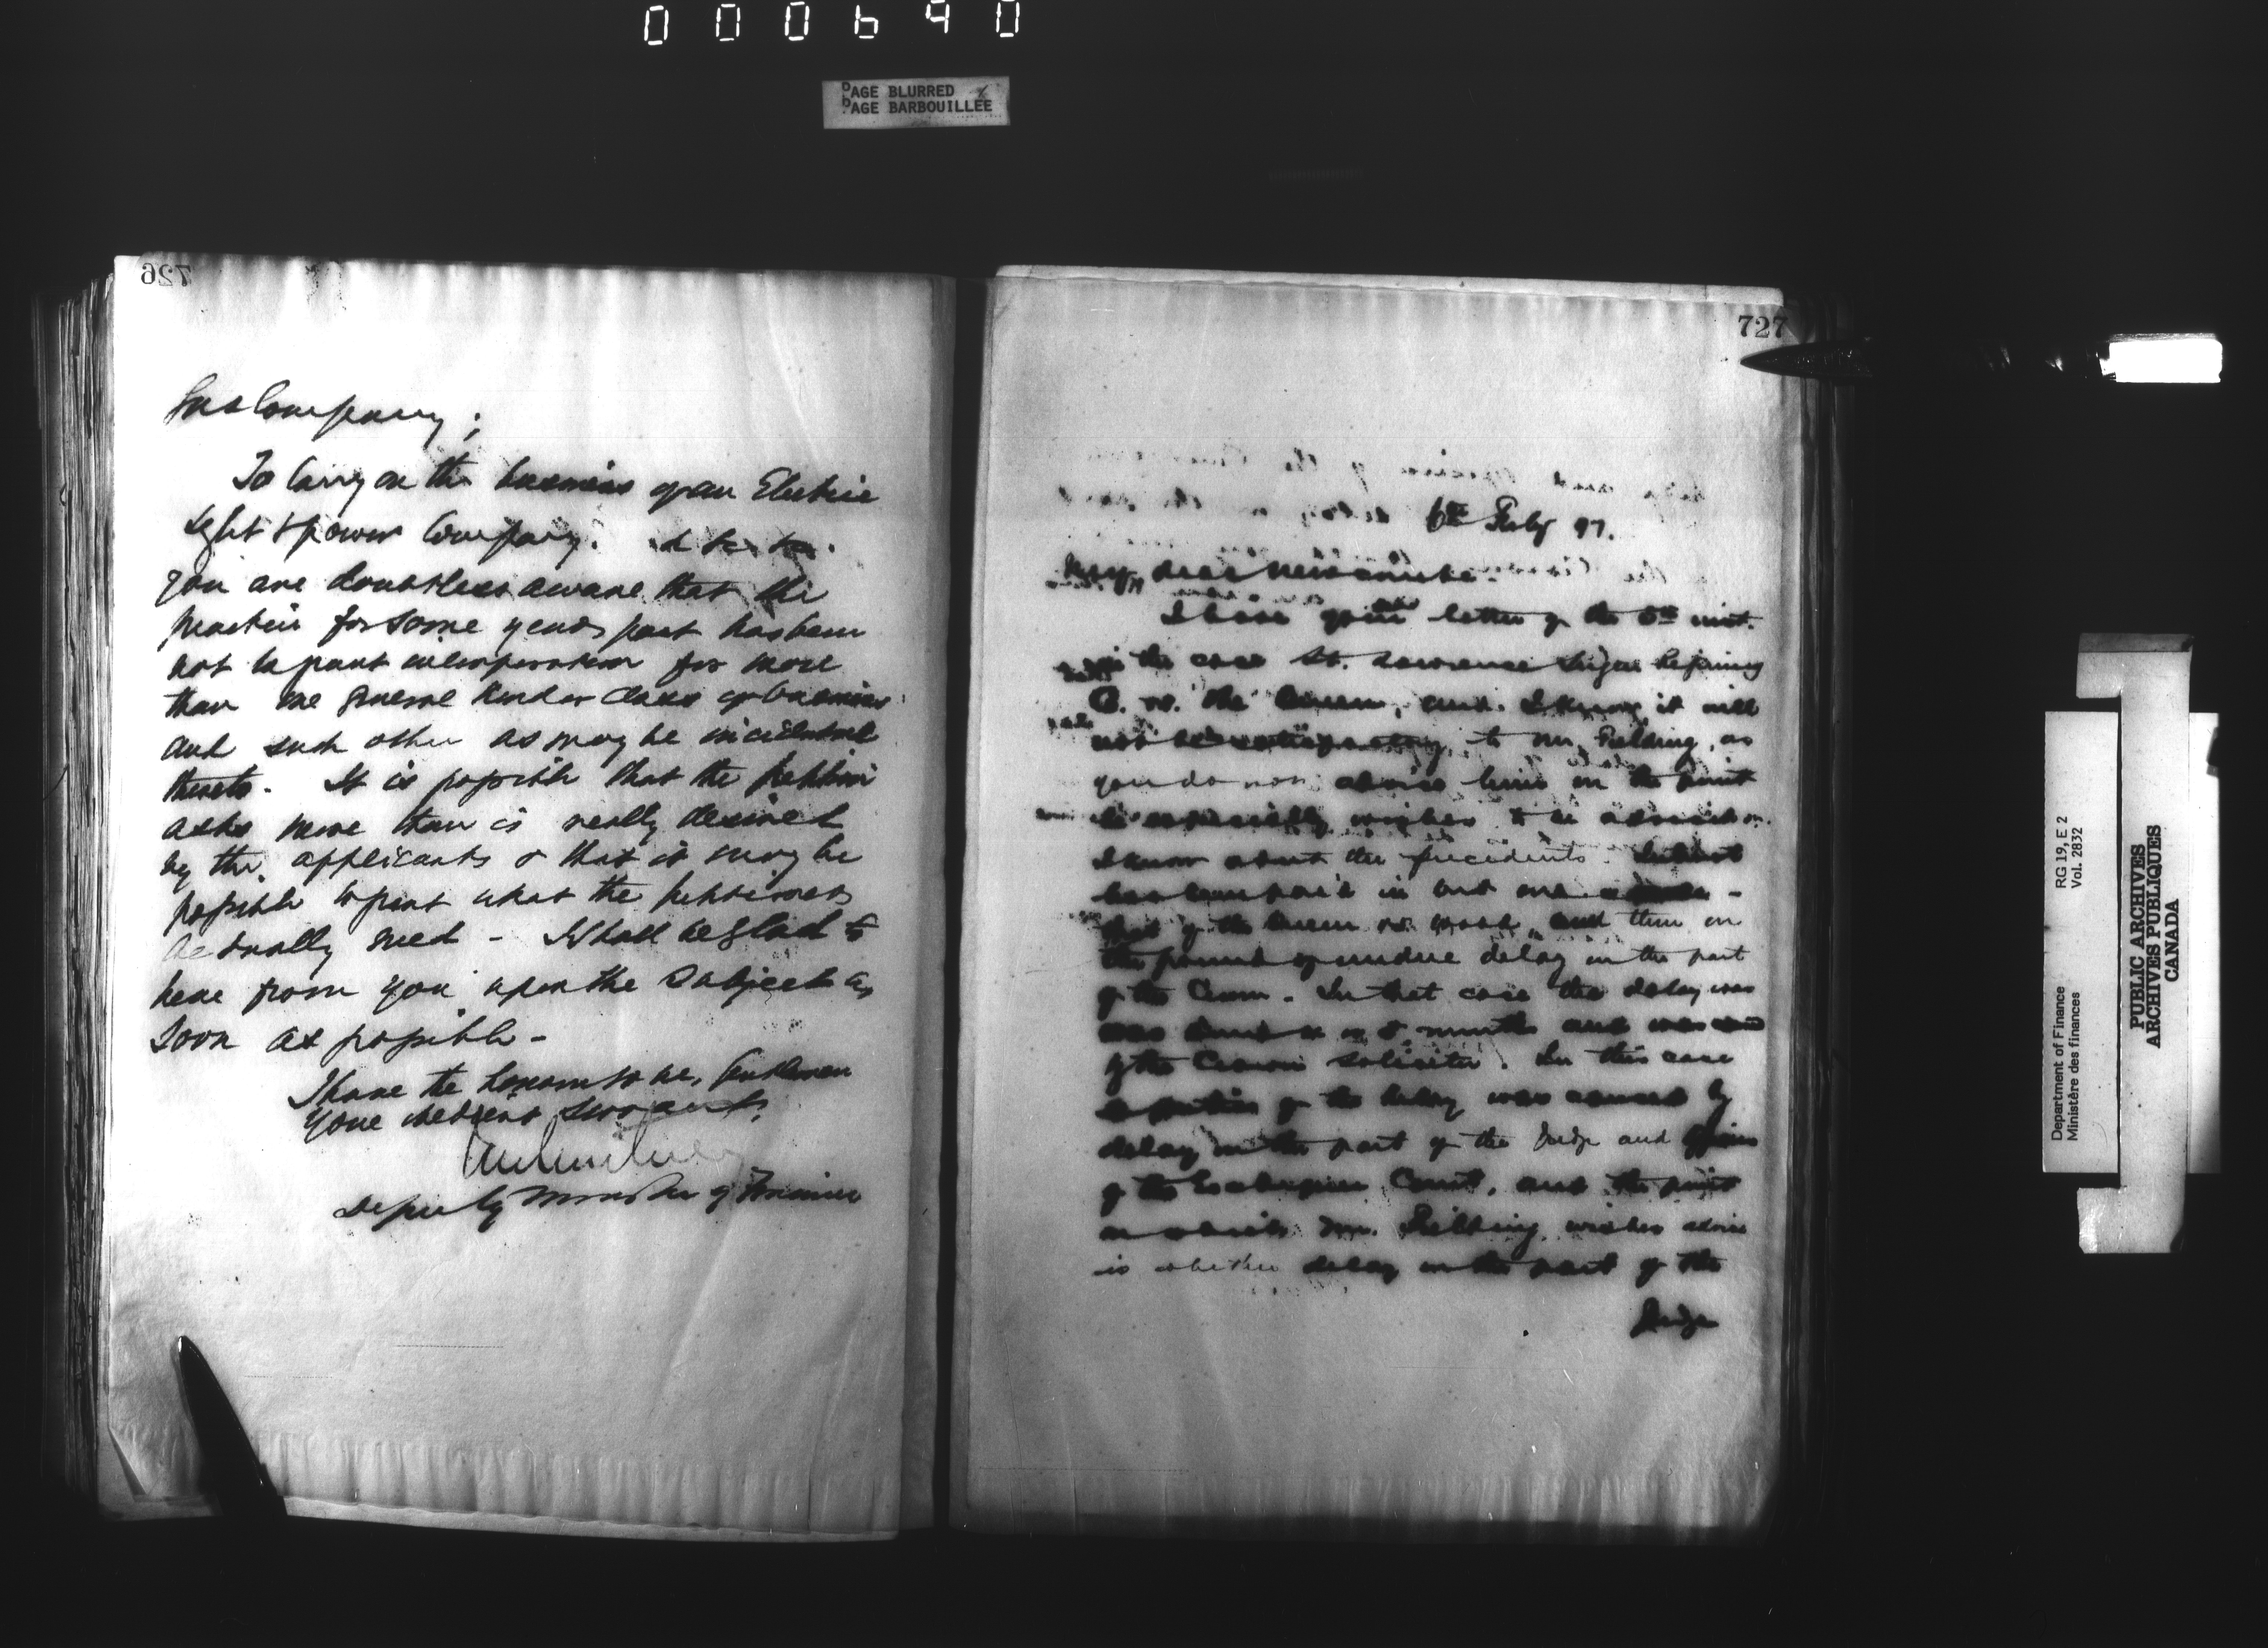 000640
PAGE BLURRED
PAGE BARBOUILLEE
726
Gas Company;
To carry on the business of an Electric
Light & power Company.
You are doubtless aware that the
practice for some years past has been
not to grant incorporation for more
than one general kind or class of business
and such other as may be incidental
thereto. It is possible that the petition
asks more than is really desired
by the applicants & that it may be
possible to grant what the petitioners
actually need - I shall be glad to
hear from you upon the subject as
soon as possible -
I have the honour to be, Gentlemen
your obedient servant,
Deputy Minister of Finance
727
6th July 97.
My dear Newcombe.
I have your letter of the 5th inst.
in the case St. Lawrence Sugar Refining
C. vs. the Queen, and I know it will
not be satisfactory to Mr. Fielding, as
you do not advise him on the point
he especially wishes to be advised on.
I know about the precedents. Interest
has been paid in but one -
that of the Queen vs. Wood, and then on
the ground of undue delay on the part
of the Crown. In that case the delay was
was months and was
of the Crown solicitor. In this case
a portion of the delay was caused by
delay on the part of the Judge and
of the Exchequer Court, and the point
on which Mr. Fielding wishes advice
is whether delay on the part of the
Judge
Department of Finance
Ministère des finances
RG 19, E 2
Vol. 2832
PUBLIC ARCHIVES
ARCHIVES PUBLIQUES
CANADA